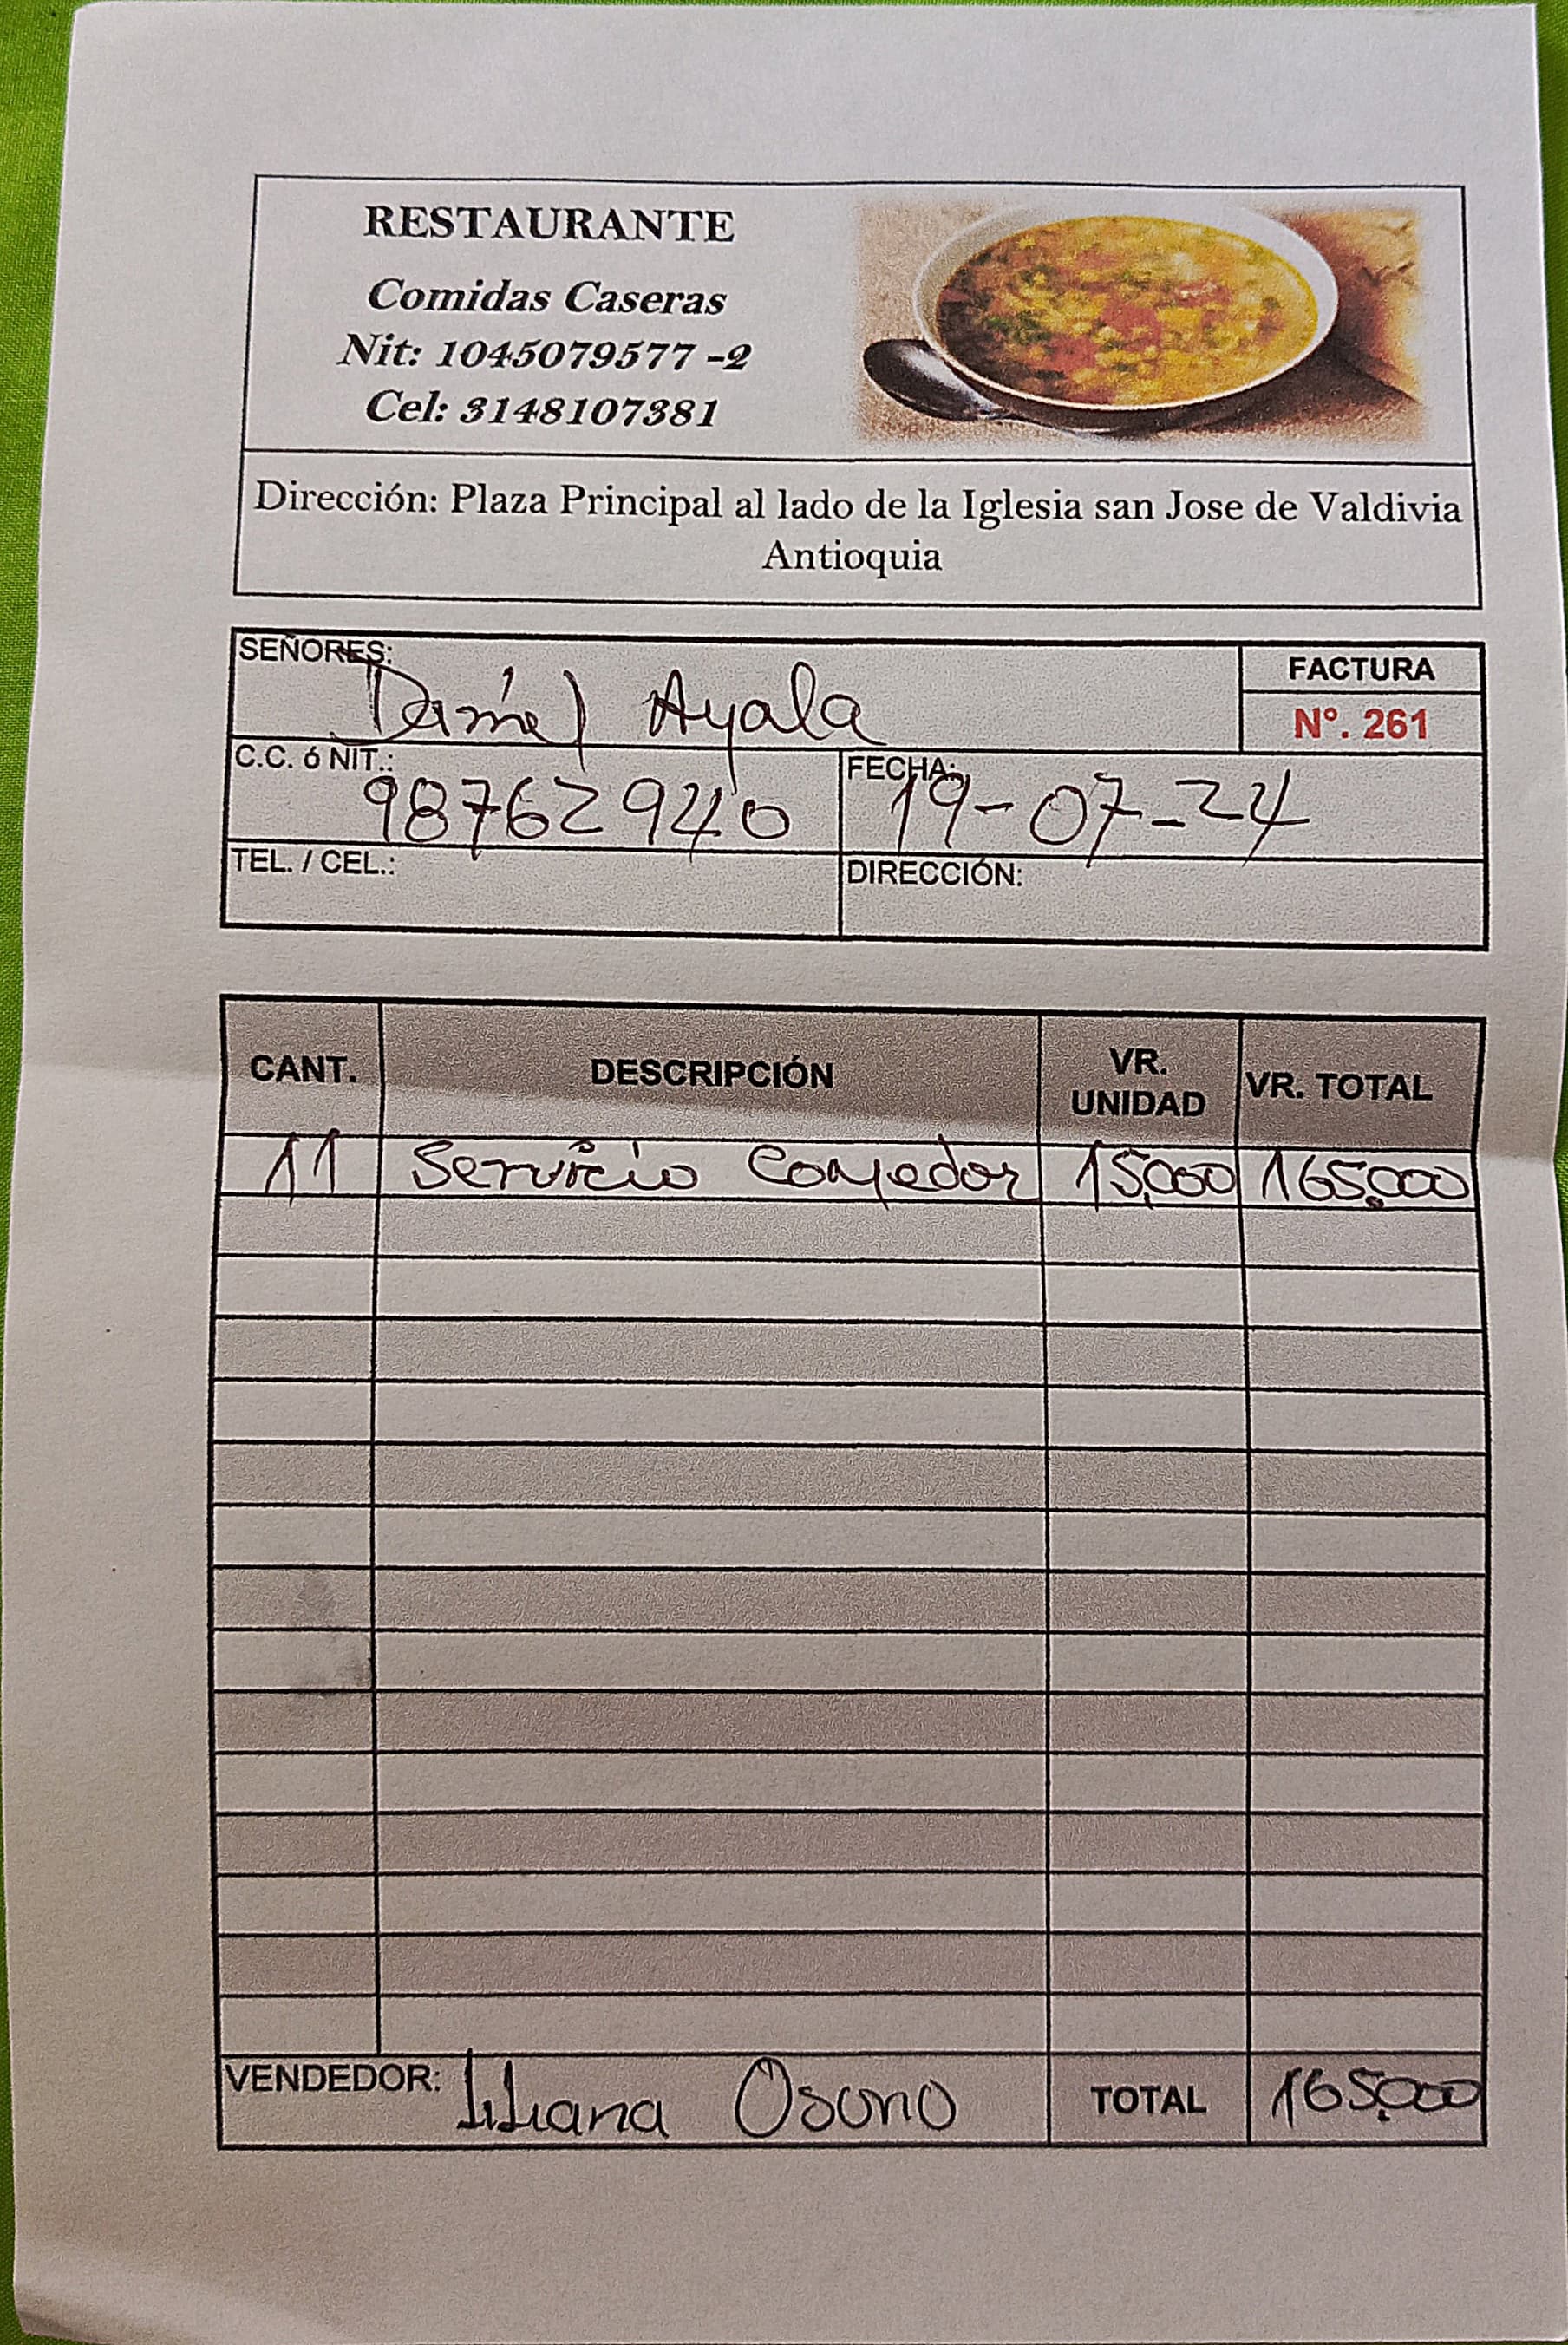 RESTAURANTE
Comidas Caseras
Nit: 1045079577 -2
Cel: 3148107381
Dirección: Plaza Principal al lado de la Iglesia san Jose de Valdivia
Antioquia
SEÑORES: Daniel Ayala
FACTURA
Nº. 261
C.C. ó NIT.: 98762940
FECHA: 19-07-24
TEL. / CEL.:
DIRECCIÓN:
CANT. DESCRIPCIÓN VR. UNIDAD VR. TOTAL
11 Servicio Comedor 15,000 165,000
VENDEDOR: Liliana Osuno TOTAL 165,000